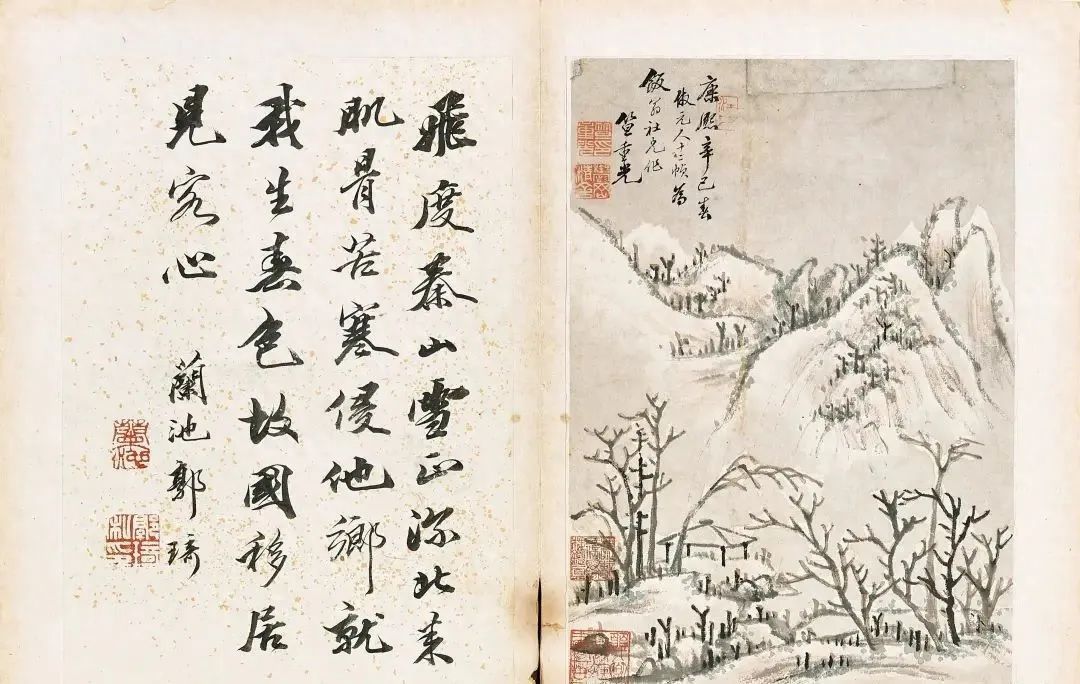 康熙辛巳春
倣元人十二幀為
飯翁社兄作
笪重光
飛度秦山雪正深北来
肌骨苦寒侵他鄉就
我生春色故國移居
見客心
蘭池郭琦